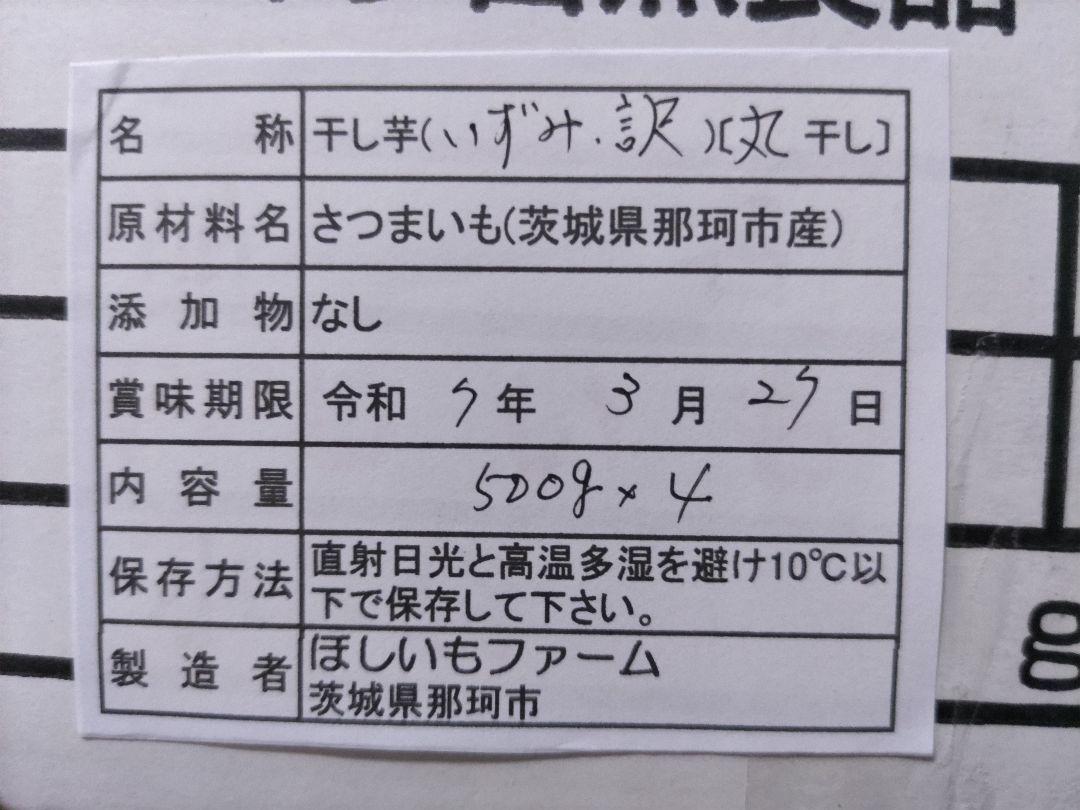 名称 干し芋(いずみ・訳)〔丸干し〕
原材料名 さつまいも(茨城県那珂市産)
添加物 なし
賞味期限 令和 7年 3月 27日
内容量 500g×4
保存方法 直射日光と高温多湿を避け10℃以
下で保存して下さい。
製造者 ほしいもファーム
茨城県那珂市
g